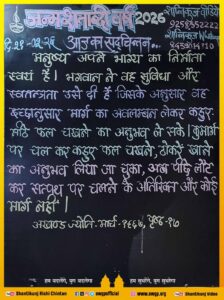 जन्मशताब्दी वर्ष 2026
आज का सद्चिन्तन
मनुष्य अपने भाग्य का निर्माता
स्वयं है। भगवान ने वह सुविधा और
स्वतन्त्रता उसे दी है जिसके अनुसार वह
इच्छानुसार मार्ग का अवलम्बन लेकर कडुए
मीठे फल चखने का अनुभव ले सके। कुमार्ग
पर चल कर कडुए फल चखने, ठोकरें खाने
का अनुभव लिया जा चुका, अब पीछे लौट
कर सत्पथ पर चलने के अतिरिक्त और कोई
मार्ग नहीं।
अखण्ड ज्योति- मार्च-१९६४, पृष्ठ-१७
हम बदलेंगे, युग बदलेगा
हम सुधरेंगे, युग सुधरेगा
Shantikunj Rishi Chintan
awgpofficial
www.awgp.org
Shantikunj Rishi Chintan